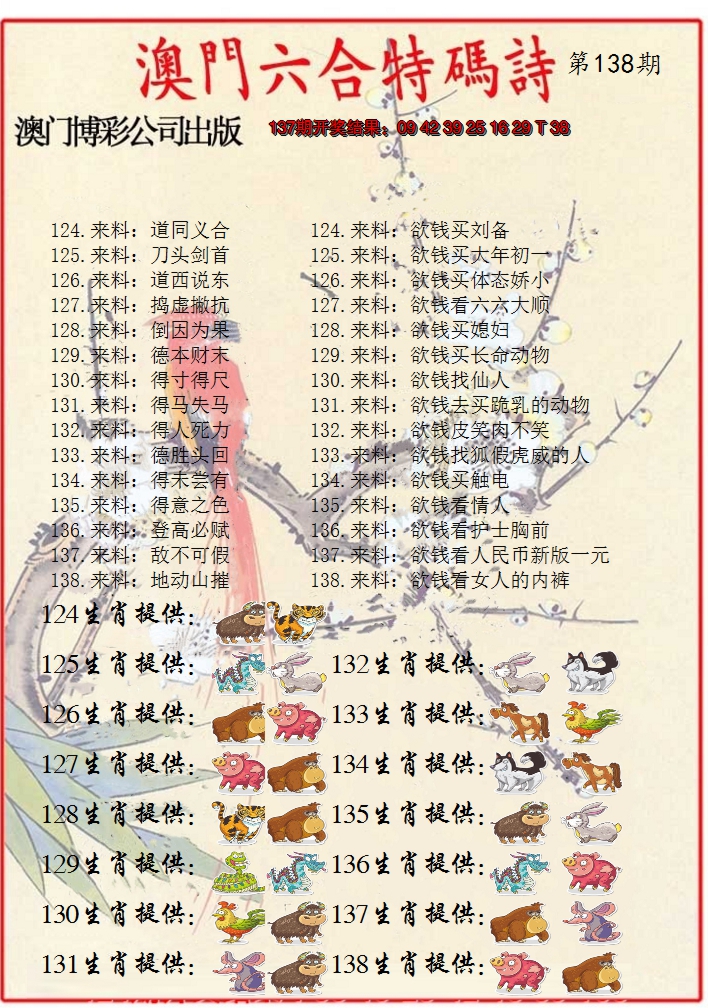 澳門六合特碼詩 第138期
澳门博彩公司出版 137期开奖结果：09 42 39 25 16 29 T 36
124.来料：道同义合 124.来料：欲钱买刘备
125.来料：刀头剑首 125.来料：欲钱买大年初一
126.来料：道西说东 126.来料：欲钱买体态娇小
127.来料：捣虚撇抗 127.来料：欲钱看六六大顺
128.来料：倒因为果 128.来料：欲钱买媳妇
129.来料：德本财末 129.来料：欲钱买长命动物
130.来料：得寸得尺 130.来料：欲钱找仙人
131.来料：得马失马 131.来料：欲钱去买跪乳的动物
132.来料：得人死力 132.来料：欲钱皮笑肉不笑
133.来料：德胜头回 133.来料：欲钱找狐假虎威的人
134.来料：得未尝有 134.来料：欲钱买触电
135.来料：得意之色 135.来料：欲钱看情人
136.来料：登高必赋 136.来料：欲钱看护士胸前
137.来料：敌不可假 137.来料：欲钱看人民币新版一元
138.来料：地动山摧 138.来料：欲钱看女人的内裤
124生肖提供：
125生肖提供： 132生肖提供：
126生肖提供： 133生肖提供：
127生肖提供： 134生肖提供：
128生肖提供： 135生肖提供：
129生肖提供： 136生肖提供：
130生肖提供： 137生肖提供：
131生肖提供： 138生肖提供：